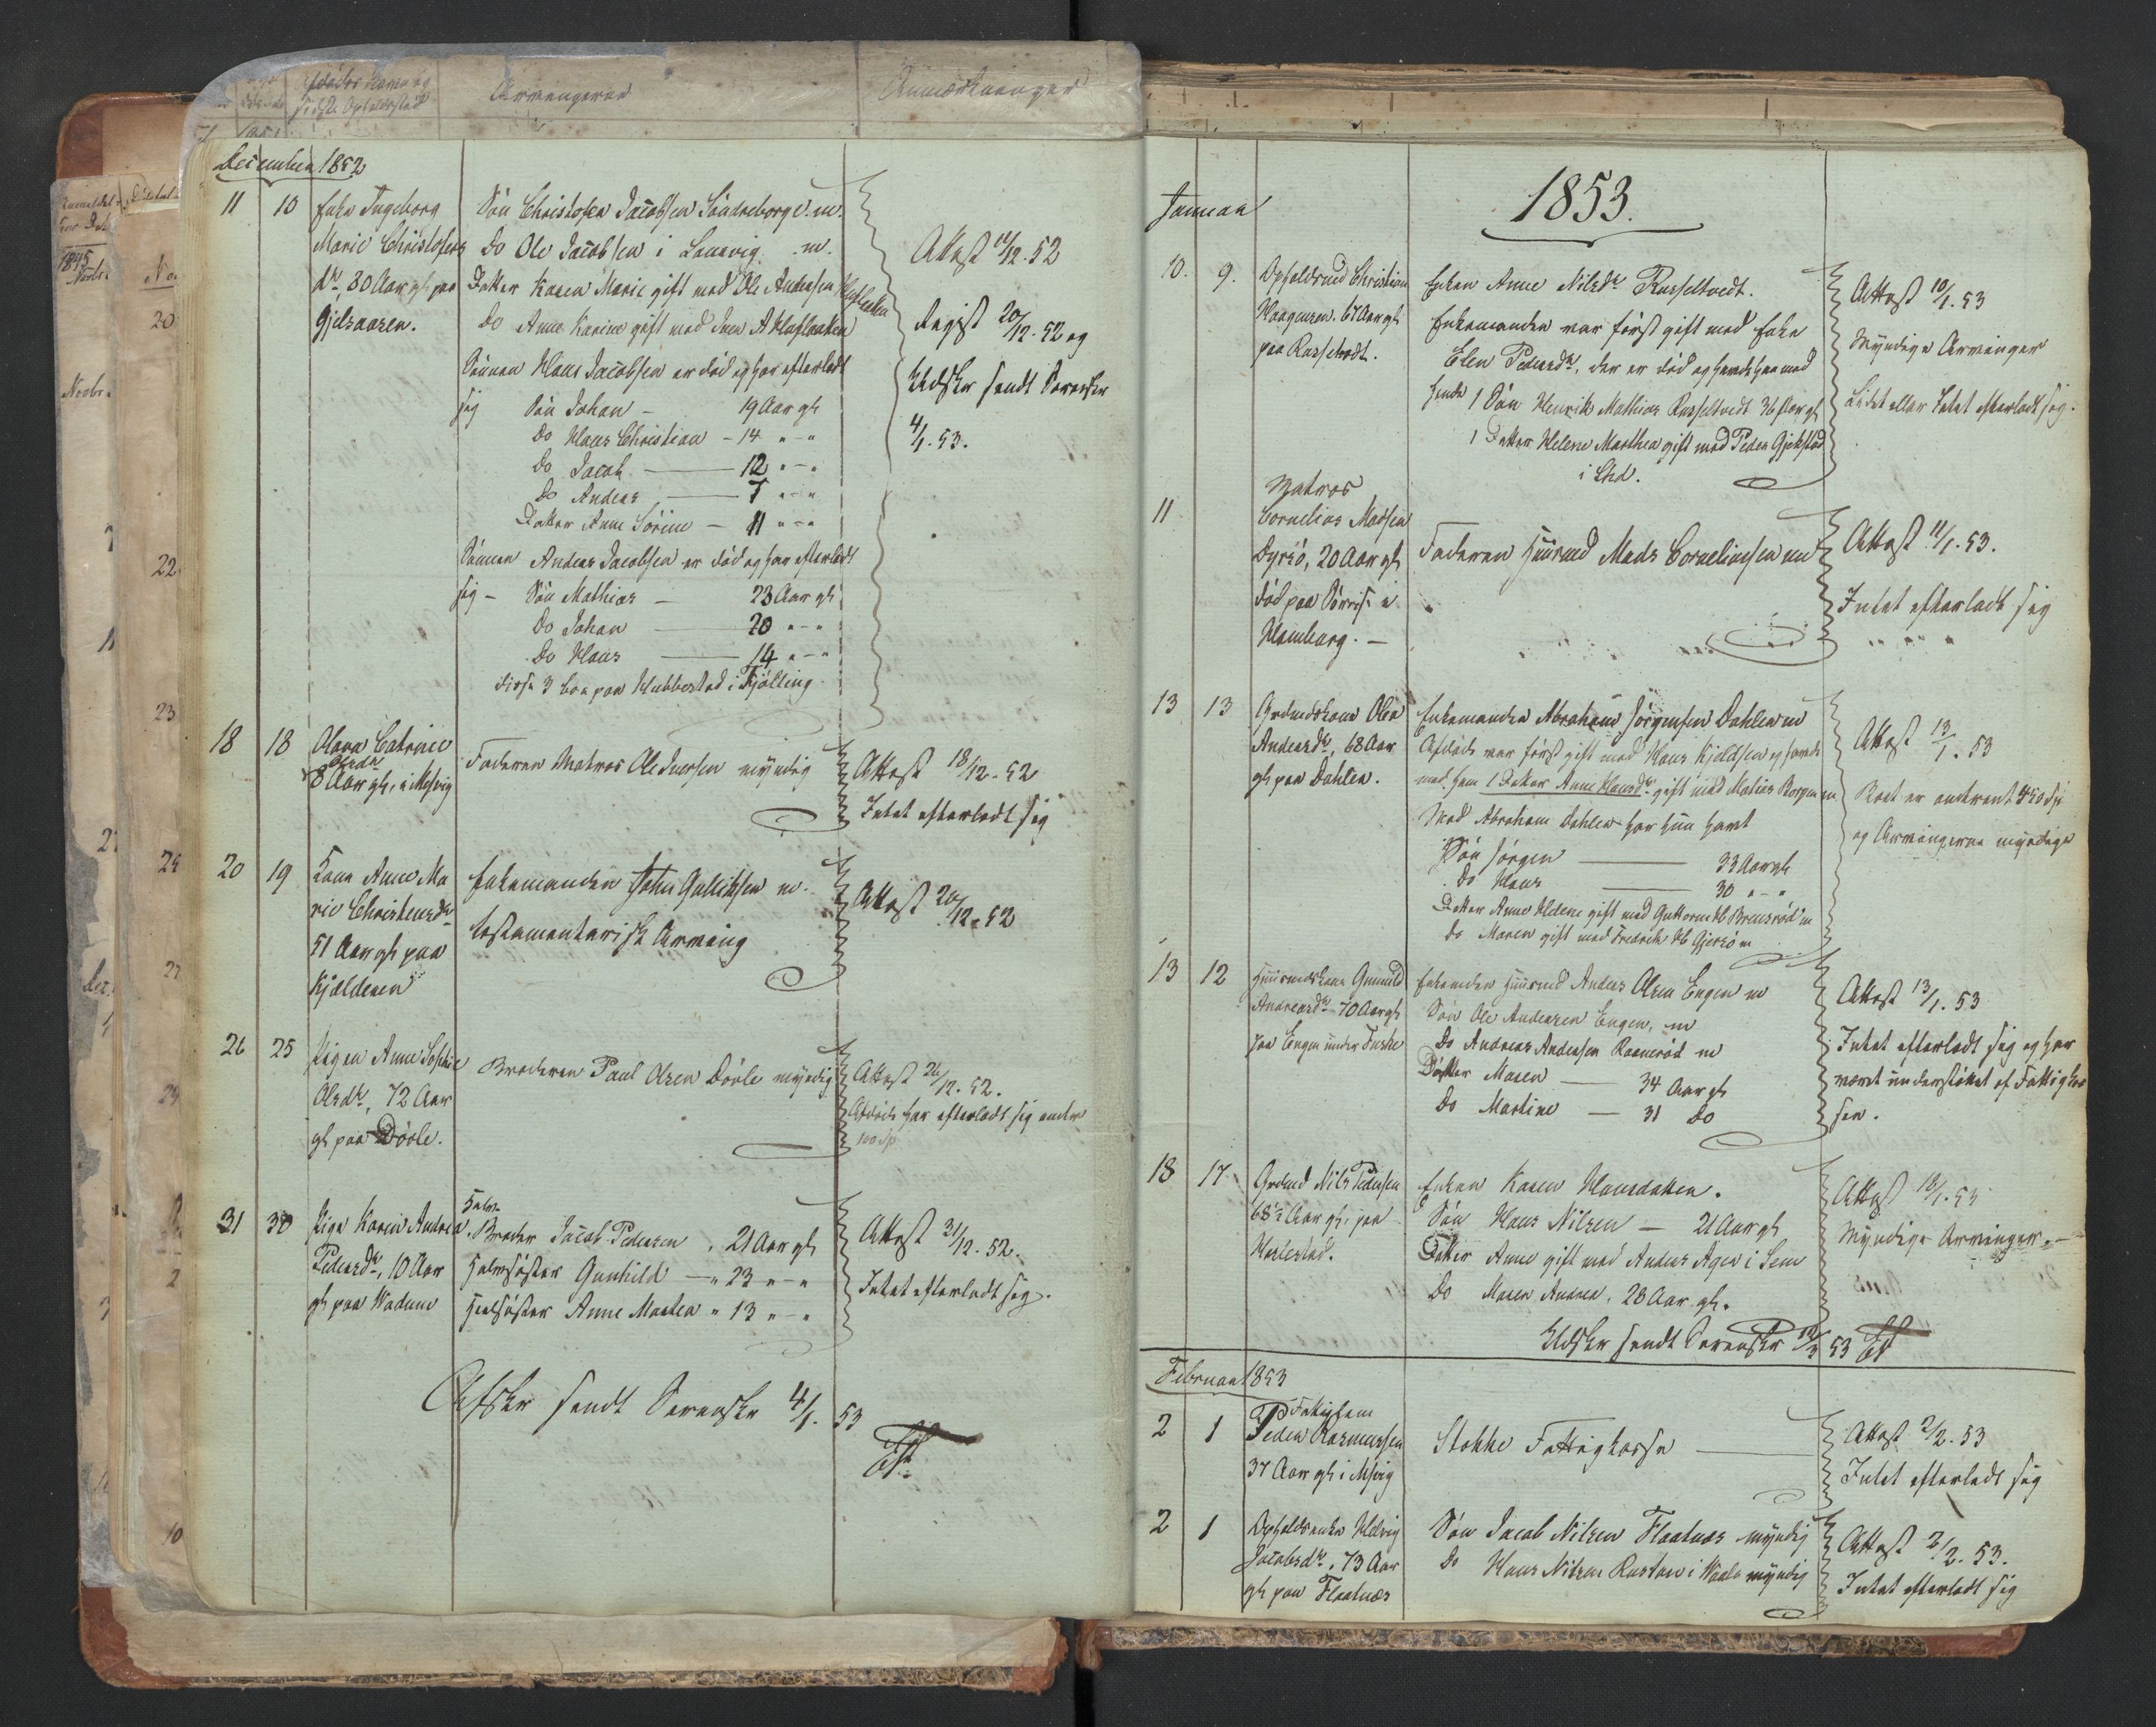 Afdødes Navn og
sidste Opholdssted
Arvingerne
Anmærkninger
December 1852
11 10 Enke Ingeborg
Marie Christofers
dr, 80 Aar gl paa
Gjelsaasen.
Søn Christofer Jacobsen Søndreborge. m.
Do Ole Jacobsen i Laurvig. m.
Datter Karen Marie gift med Ole Andersen
Do Anne Karine gift med
Sønnen Hans Jacobsen er død og har efterladt
sig Søn Johan - 19 Aar gl
Do Hans Christian - 14 " - "
Do Jacob - 12 " - "
Do Anders - 7 " - "
Datter Anne Sörine - 11 " - "
Sønnen Anders Jacobsen er død og har efterladt
sig - Søn Mathias - 23 Aar gl
Do Johan - 20 " - "
Do Hans - 14 " - "
disse 3 boe paa Hubbestad i Tjølling
Attest 11/12. 52
Regist 20/12. 52 og
Udskr sendt Sorenskr
4/1. 53.
18 18 Olava Catrine
Olsdr
8 Aar gl, i Melsvig
Faderen Matros Ole Iversen myndig
Attest 18/12. 52
Intet efterladt sig
20 19 Kone Anne Ma
rie Christensdr
51 Aar gl paa
Kjælderen
Enkemanden John Gullichsen m.
testamentarisk Arving
Attest 20/12. 52
26 25 Pigen Anne Sophie
Olsdr, 72 Aar
gl paa Døvle.
Broderen Paul Olsen Døvle myndig
Attest 26/12. 52.
Afdøde har efterladt sig under
100 Sp
31 30 Pige Karin Andrea
Pedersdr, 10 Aar
gl paa Wadum
Halv
Broder Jacob Pedersen 21 Aar gl
Halvsøster Gunhild - " 23 " - "
Helsøster Anne Martea " 13 " - "
Attest 31/12. 52.
Intet efterladt sig.
Udskr sendt Sorenskr 4/1. 53
1853.
Januar
10. 9. Opholdsmd Christian
Haagensen. 67 Aar gl
paa Russeltvedt.
Enken Anne Nilsdr Russeltvedt.
Enkemanden var først gift med Enke
Elen Pedersdr, der er død og havde han med
hende 1 Søn Henrik Mathias Russeltvedt 36 Aar gl
1 Datter Helene Marthea gift med Peder Gjekstad
i
Attest 10/1. 53
Myndige Arvinger
Lidet eller Intet efterladt sig.
11 Matros
Cornelius Madsen
Dyrsø, 20 Aar gl
død paa Søreise i
Hamburg. -
Faderen Huusmd Mads Corneliussen
Attest 11/1. 53.
Intet efterladt sig
13 13 Grdmdskone Olea
Andersdr, 68 Aar
gl paa Dahlen.
Enkemanden Abraham Jörgensen Dahlen m
Afdøde var først gift med Hans Kjeldsen og havde
med ham 1 Datter Anne Hansdr gift med Matias Borgen m
Med Abraham Dahlen har hun havt
Søn Jörgen - 33 Aar gl
Do Hans - 30 " - "
Datter Anne Helene gift med Guttorm Brensrød m
Do Maren gift med Fredrik Gjersø m
Attest 13/1. 53
Boet er anderaut 450 Sp
og Arvingerne myndige
13 12 Huusmdskone Gunnild
Andreasdr 70 Aar gl
paa Engen under Fuske
Enkemden Huusmd Anders Olsen Engen m
Søn Ole Andersen Engen, m
Do Andreas Andersen Ramsrød m
Datter Maren - 34 Aar gl
Do Martine - 31 Do
Attest 13/1. 53
Intet efterladt sig og har
været understøttet af Fattigkas
sen.
18 17 Grdmd Nils Pedersen
68 1/2 Aar gl, paa
Harlestad.
Enken Karen Hansdatter.
Søn Hans Nilsen - 21 Aar gl
Datter Anne gift med Anders Agen i Sem
Do Maren Andrea, 28 Aar gl.
Attest 18/1. 53
Myndige Arvinger. -
Udskr sendt Sorenskr 12/2 53
Februar 1853
2 1 Fattiglem
Peder Rasmussen
37 Aar gl i Melsvig
Stokke Fattigkasse
Attest 2/2. 53
Intet efterladt sig
2 1 Opholdsenke Helvig
Jacobsdr, 73 Aar
gl paa Flaatnes
Søn Jacob Nilsen Flaatnes myndig
Do Hans Nilsen Rustan i Waale myndig
Attest 2/2. 53.
Intet efterladt sig